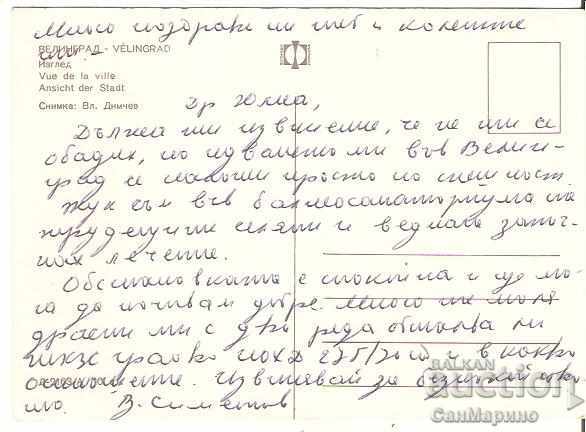 Много поздрави на теб и колегите
ми. -
ВЕЛИНГРАД - VÉLINGRAD
Изглед
Vue de la ville
Ansicht der Stadt
Снимка: Вл. Димчев
Др Юлиа,
Дължа ти извинение, че не ти се
обадих, но идването ми във Велин-
град се наложи просто по спешност.
Тук съм във балнеосанаториума на
трудещите селяни и веднага започ-
нах лечение.
Обстановката е спокойна и ще мо-
га да почивам добре. Много те моля
драсни ми с два реда
и в какво
отношение. Извинявай за
В. Симеонов
BALKAN
auction
СанМарино